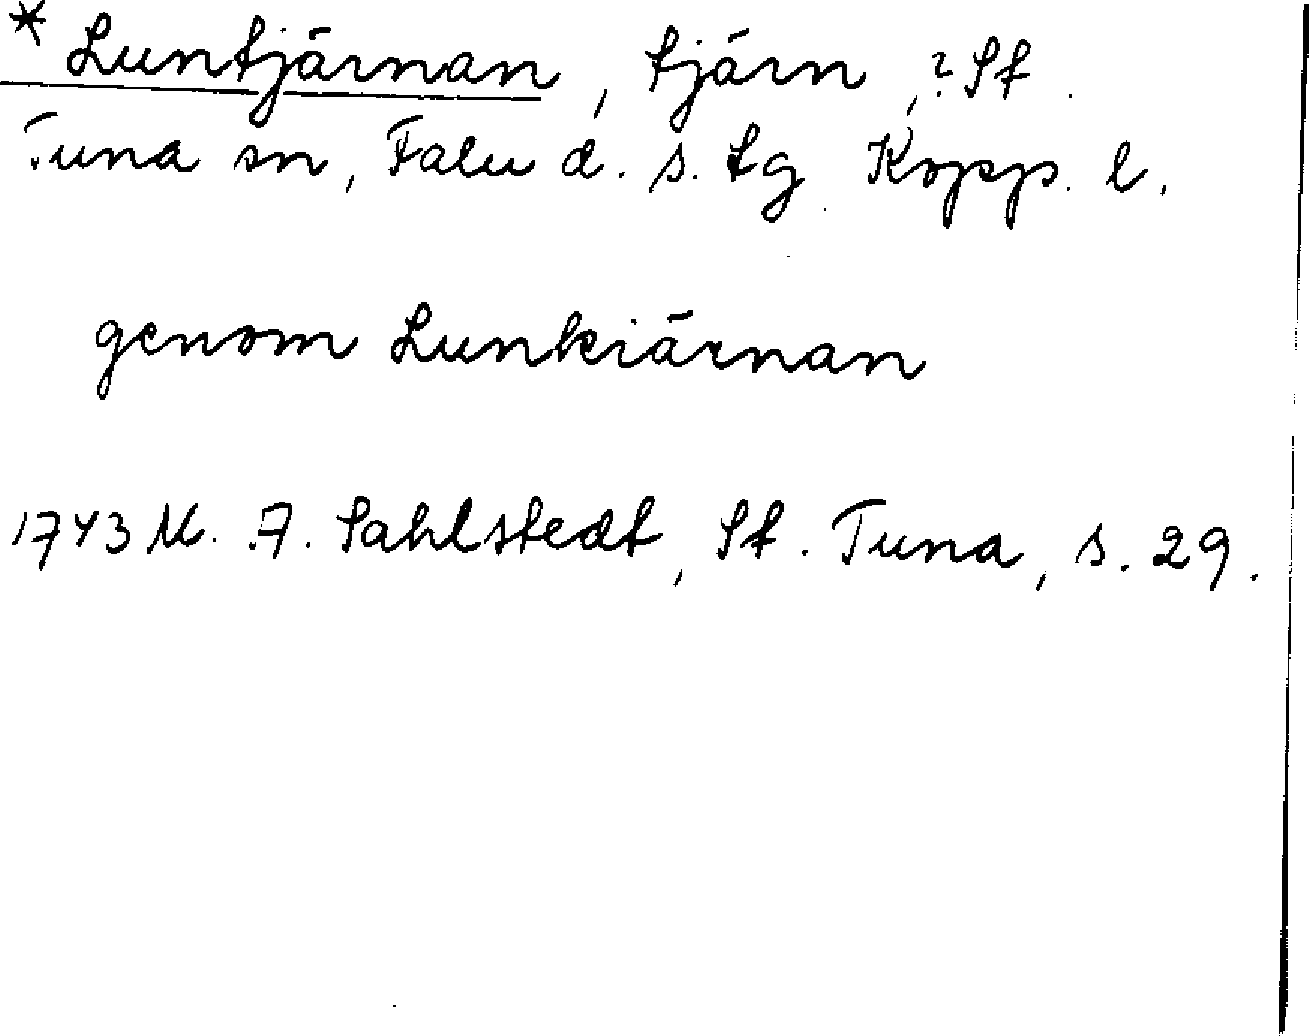 * Luntjärnan, tjärn, ? St.
Tuna sn, Falu d. s. tg Kopp. l.
genom Lunkiärnan
1743 M. A. Sahlstedt, St. Tuna, s. 29.